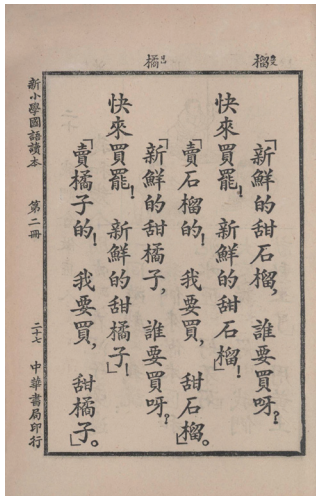 榴
橘
「新鮮的甜石榴，誰要買呀？
快來買罷！新鮮的甜石榴！」
「賣石榴的！我要買，甜石榴。」
「新鮮的甜橘子，誰要買呀？
快來買罷！新鮮的甜橘子！」
「賣橘子的！我要買，甜橘子。」
新小學國語讀本 第二冊 二十七 中華書局印行